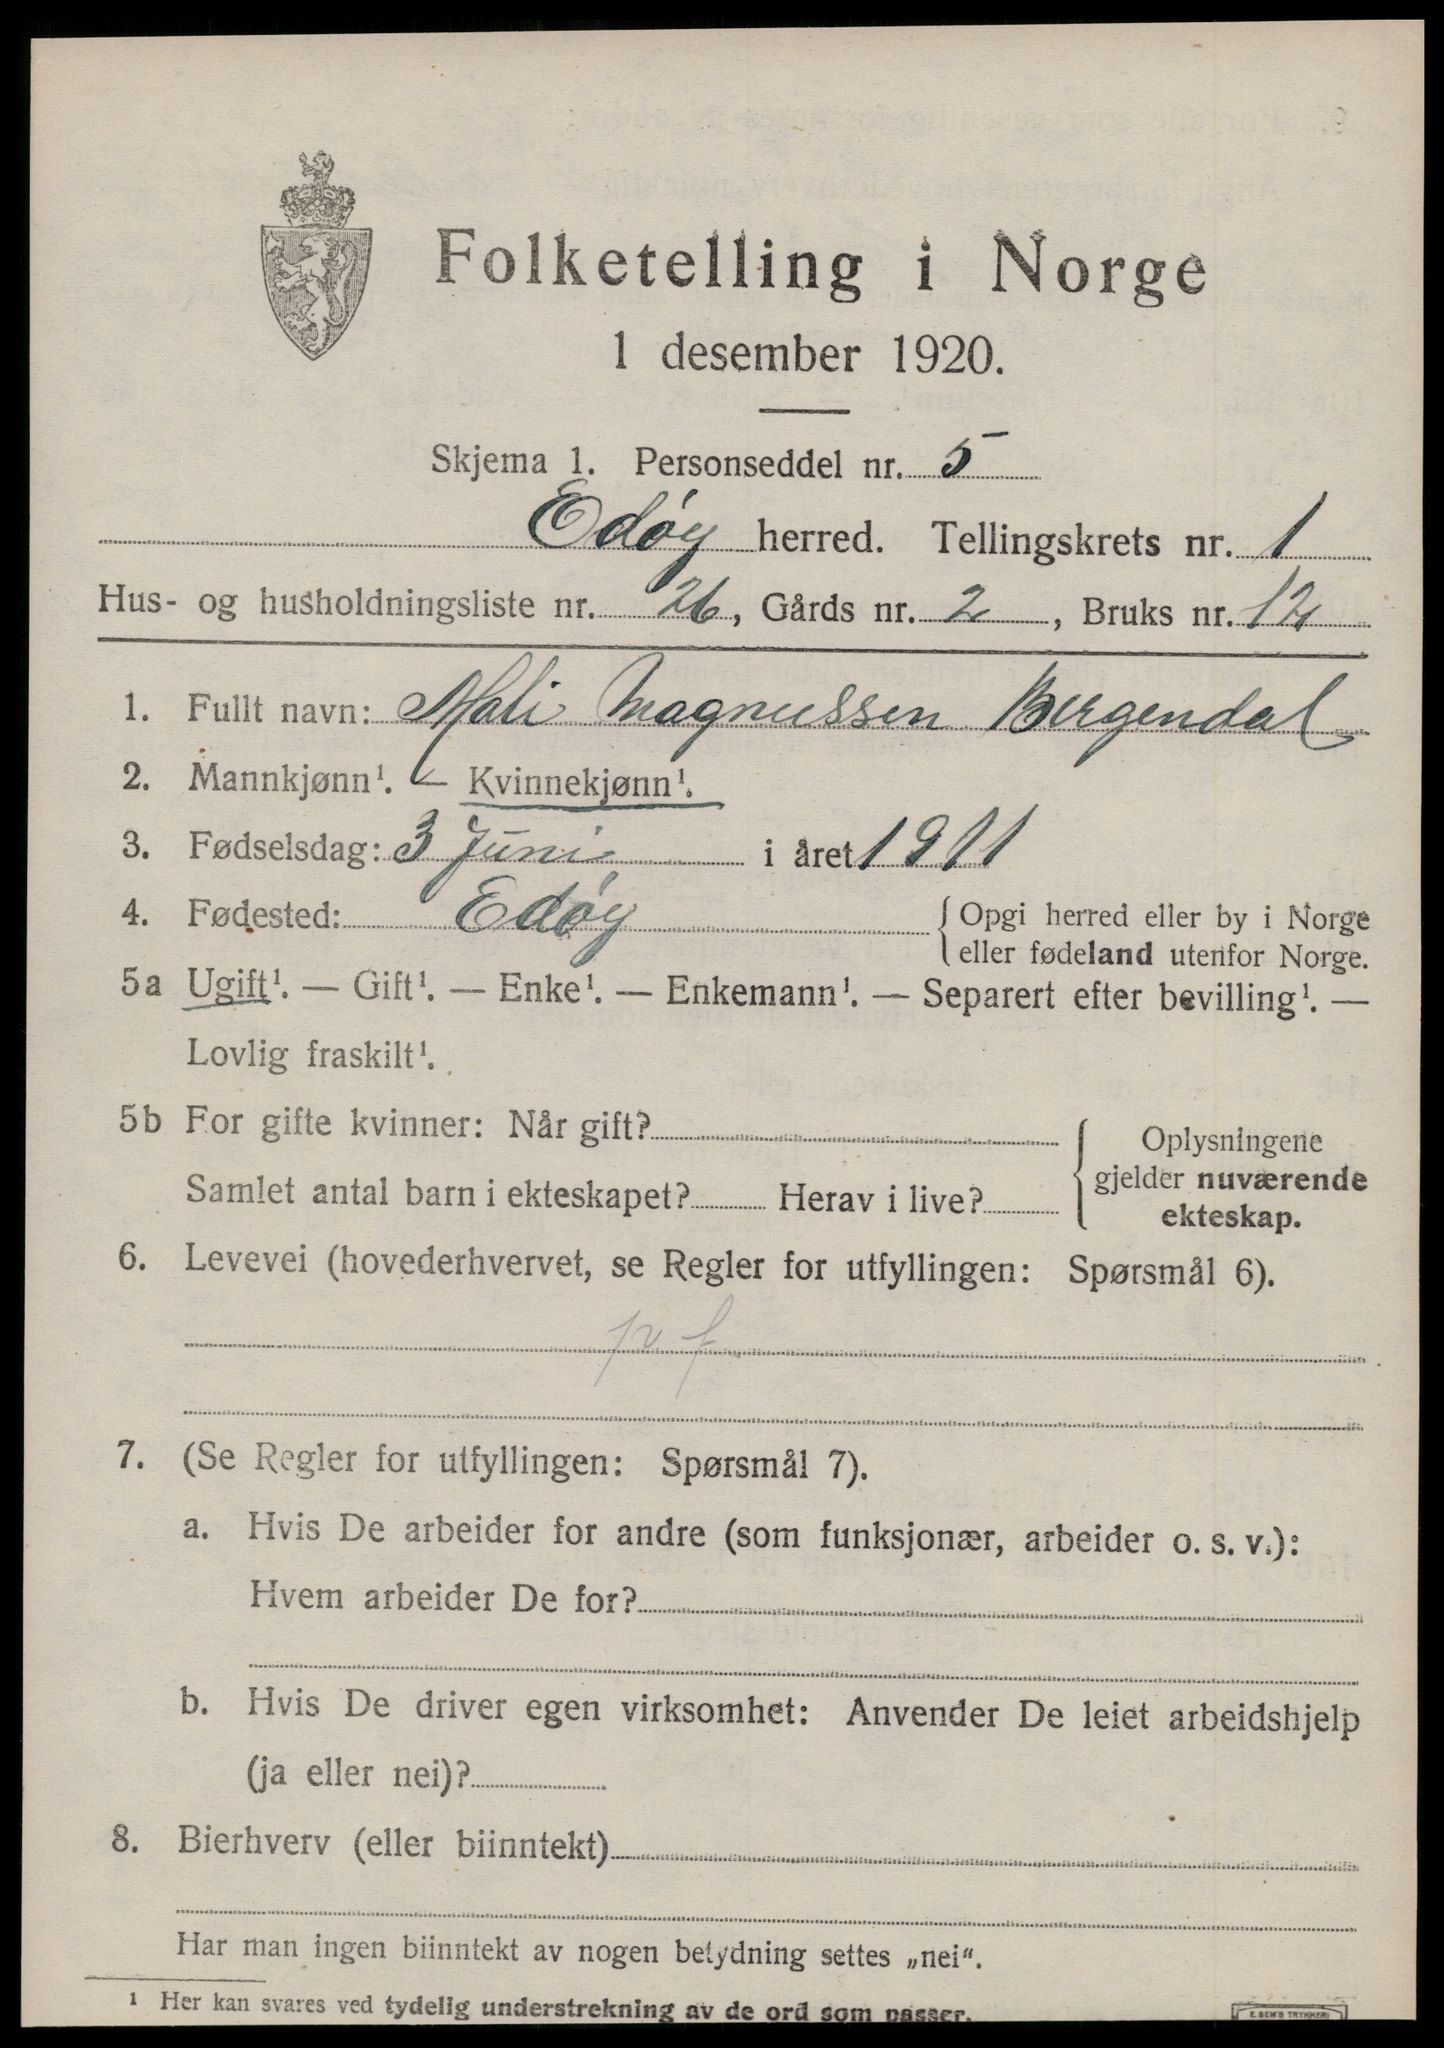 Folketelling i Norge
1 desember 1920.
Skjema 1. Personseddel nr. 5
Edøy herred. Tellingskrets nr. 1
Hus- og husholdningsliste nr. 26, Gårds nr. 2, Bruks nr. 12
1. Fullt navn: Mali Magnussen Bergendal
2. Mannkjønn¹. — Kvinnekjønn¹.
3. Fødselsdag: 3 Juni i året 1911
4. Fødested: Edøy { Opgi herred eller by i Norge
eller fødeland utenfor Norge.
5a Ugift¹. — Gift¹. — Enke¹. — Enkemann¹. — Separert efter bevilling¹. —
Lovlig fraskilt¹.
5b For gifte kvinner: Når gift?
Samlet antal barn i ekteskapet? Herav i live?
{ Oplysningene
gjelder nuværende
ekteskap.
6. Levevei (hovederhvervet, se Regler for utfyllingen: Spørsmål 6).
p f
7. (Se Regler for utfyllingen: Spørsmål 7).
a. Hvis De arbeider for andre (som funksjonær, arbeider o. s. v.):
Hvem arbeider De for?
b. Hvis De driver egen virksomhet: Anvender De leiet arbeidshjelp
(ja eller nei)?
8. Bierhverv (eller biinntekt)
Har man ingen biinntekt av nogen betydning settes „nei“.
¹ Her kan svares ved tydelig understrekning av de ord som passer.
E. SEM'S TRYKKERI